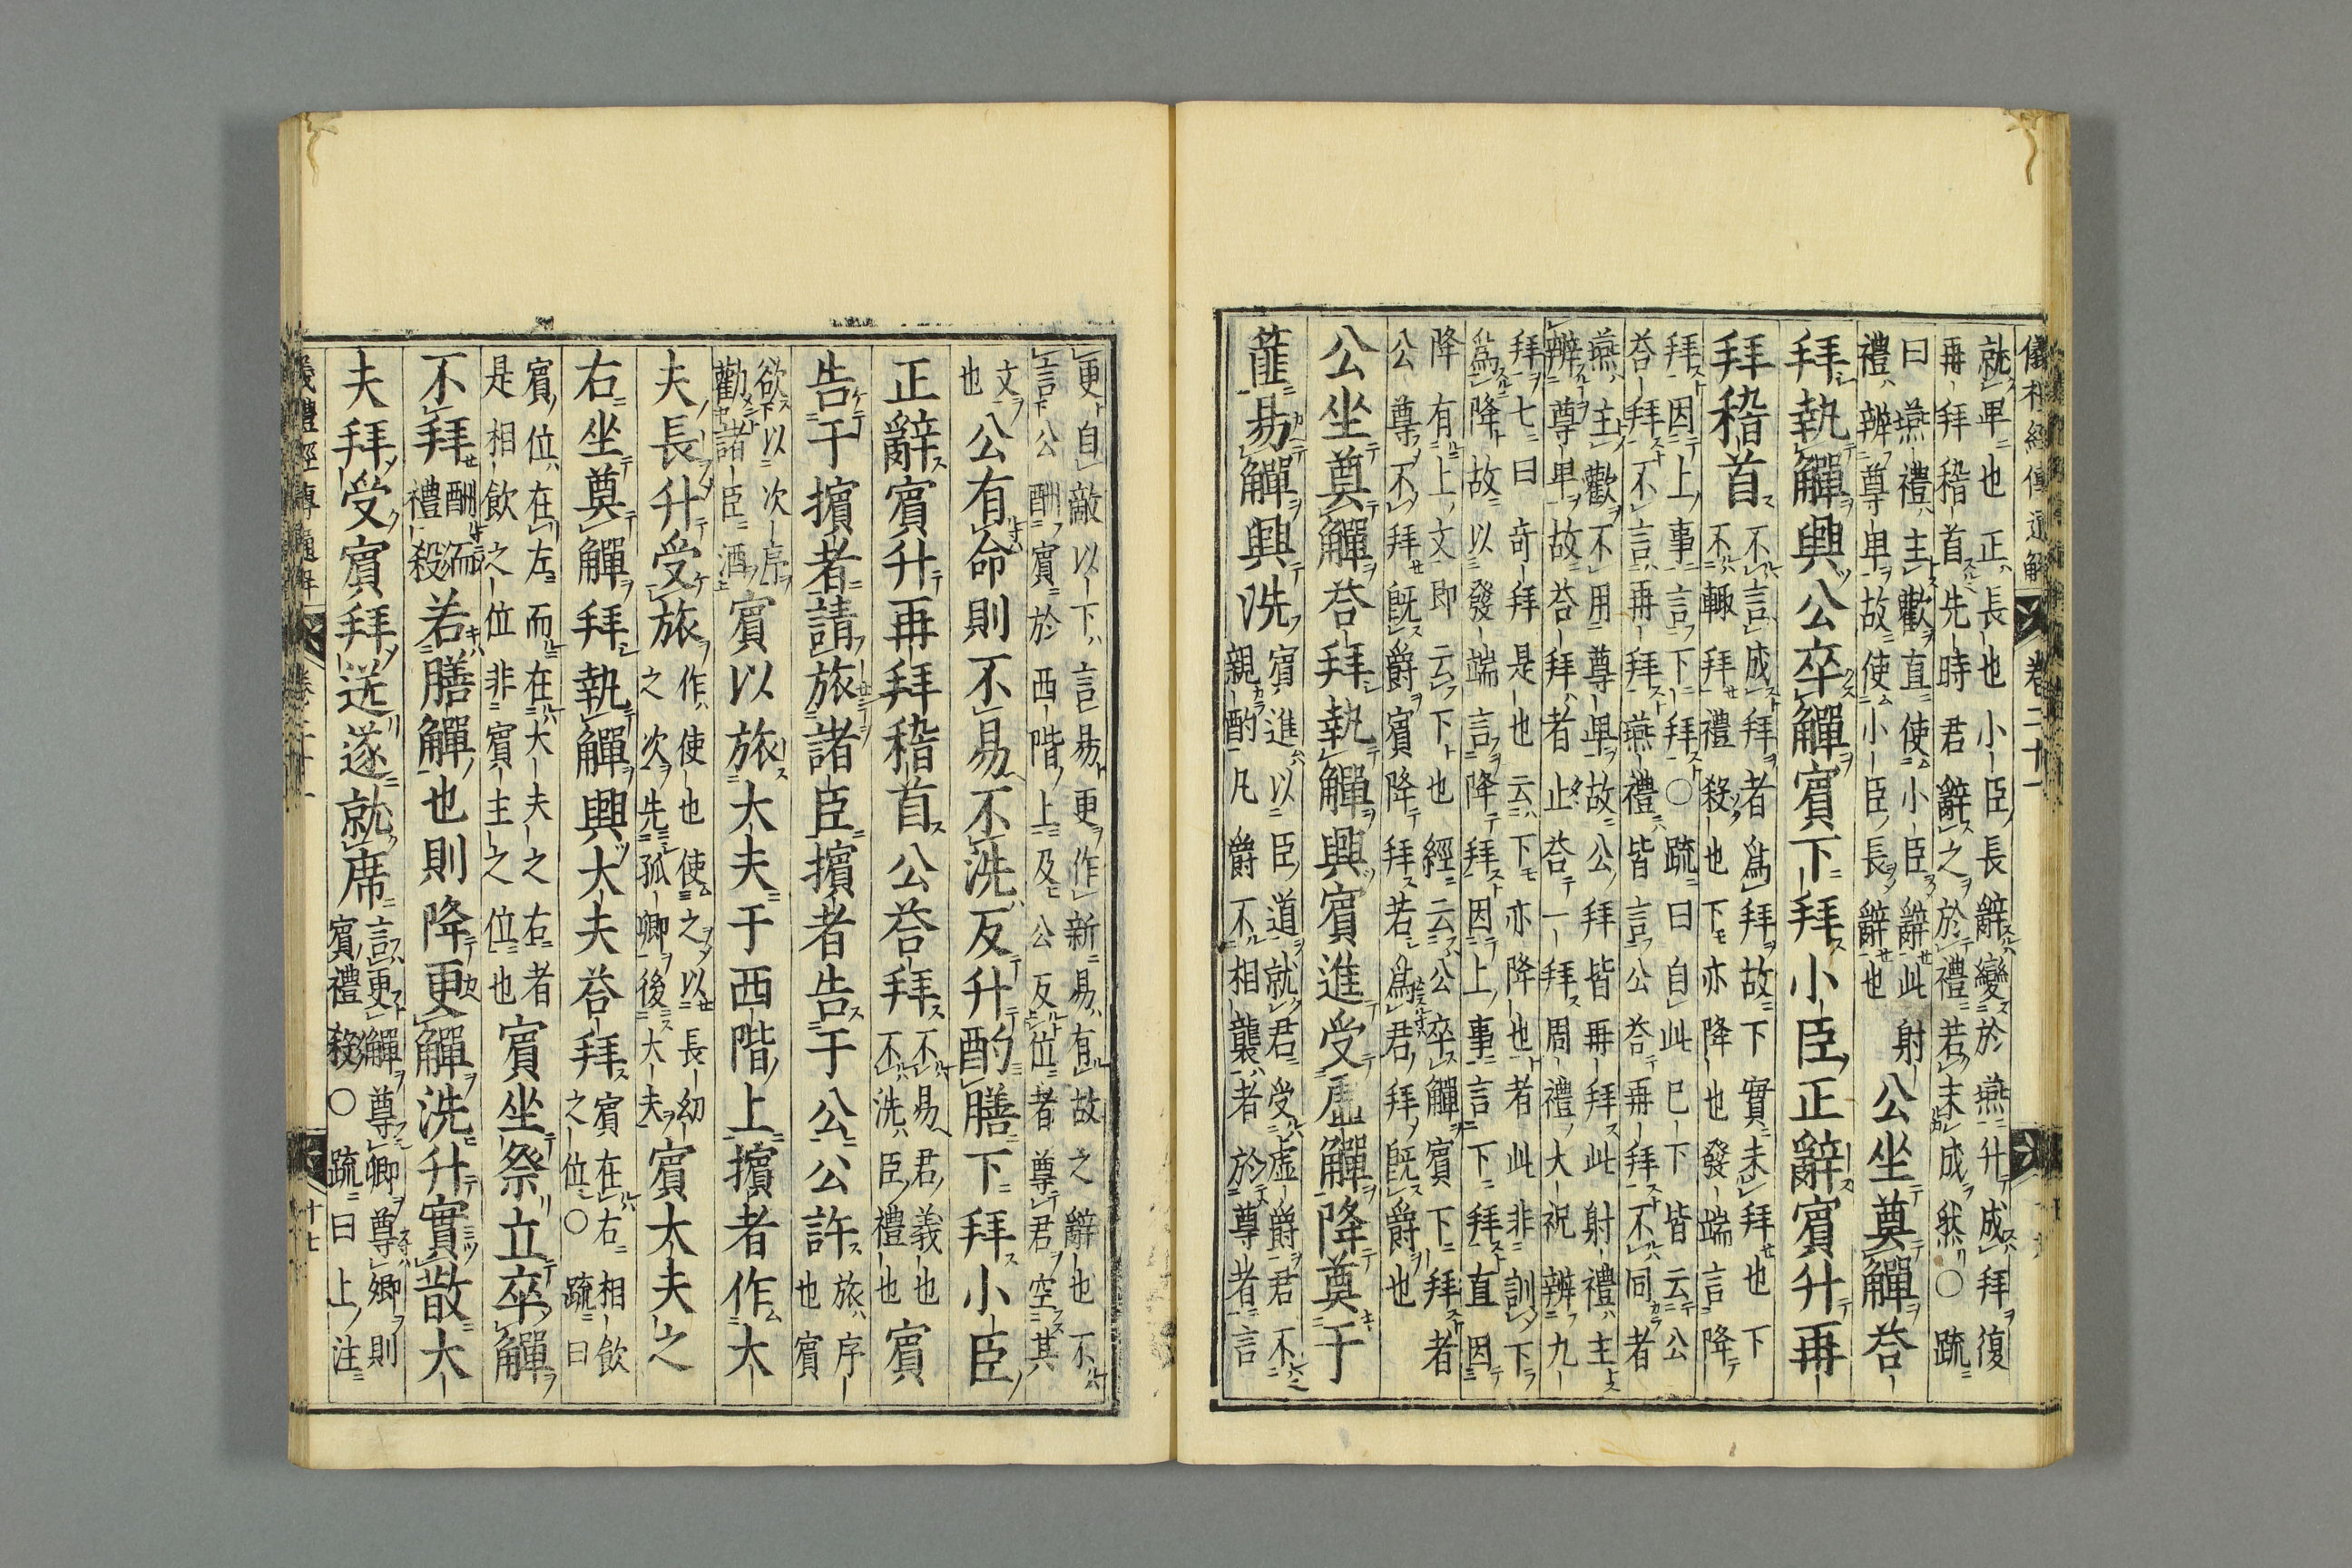 儀禮經傳通解 卷二十一
就卑也正長也小臣長辭變於燕升成拜復
再拜稽首先時君辭之於禮若未成然○疏
曰燕禮主歡直使小臣辭此射
禮辨尊卑故使小臣長辭也
公坐奠觶荅
拜執觶興公卒觶賓下拜小臣正辭賓升再
拜稽首
不言成拜者爲拜故下實未拜也下
不輒拜禮殺也下亦降也發端言降
拜因上事言下拜○疏曰自此巳下皆云公
荅拜不言再拜燕禮皆言公荅再拜不同者
燕主歡不用尊卑故公拜皆再拜此射禮主
辨尊卑故荅拜者止荅一拜周禮大祝辨九
拜七曰奇拜是也云下亦降也者此非訓下
爲降故以發端言降拜因上事言下拜直因
降有上文即云下也經云公卒觶賓下拜者
公尊不拜既爵賓降拜若爲君拜既爵也
公坐奠觶荅拜執觶興賓進受虛觶降奠于
篚易觶興洗
賓進以臣道就君受虛爵君不
親酌凡爵不相襲者於尊者言
更自敵以下言易更作新易有故之辭也不
言公酬賓於西階上及公反位者尊君空其
文
也
公有命則不易不洗反升酌膳下拜小臣
正辭賓升再拜稽首公荅拜
不易君義也
不洗臣禮也
賓
告于擯者請旅諸臣擯者告于公公許
旅序
也賓
欲以次序
勸諸臣酒
賓以旅大夫于西階上擯者作大
夫長升受旅
作使也使之以長幼
之次先孤卿後大夫
賓大夫之
右坐奠觶拜執觶興大夫荅拜
賓在右相飲
之位○疏曰
賓位在左而在大夫之右者
是相飲之位非賓主之位也
賓坐祭立卒觶
不拜
酬而
禮殺
若膳觶也則降更觶洗升實散大
夫拜受賓拜送遂就席
言更觶尊卿尊卿則
賓禮殺○疏曰上注
儀禮經傳通解 卷二十一 十七